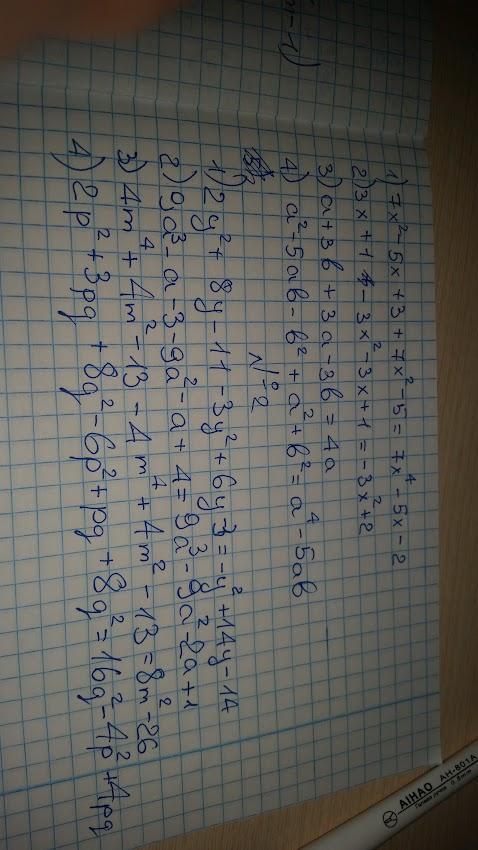 n-1)
1) 7x²-5x+3+7x²-5=7x⁴-5x-2
2) 3x+1-3x²-3x+1=-3x²+2
3) a+3b+3a-3b=4a
4) a²-5ab-b²+a²+b²=a⁴-5ab
N°2
1) 2y²+8y-11-3y²+6y-3=-y²+14y-14
2) 9a³-a-3-9a²-a+4=9a³-9a²-2a+1
3) 4m⁴+4m²-13-4m⁴+4m²-13=8m²-26
4) 2p²+3pq+8q²-6p²+pq+8q²=16q²-4p²+4pq
AIHAO AH-801A
Гелевая ручка 0.5мм